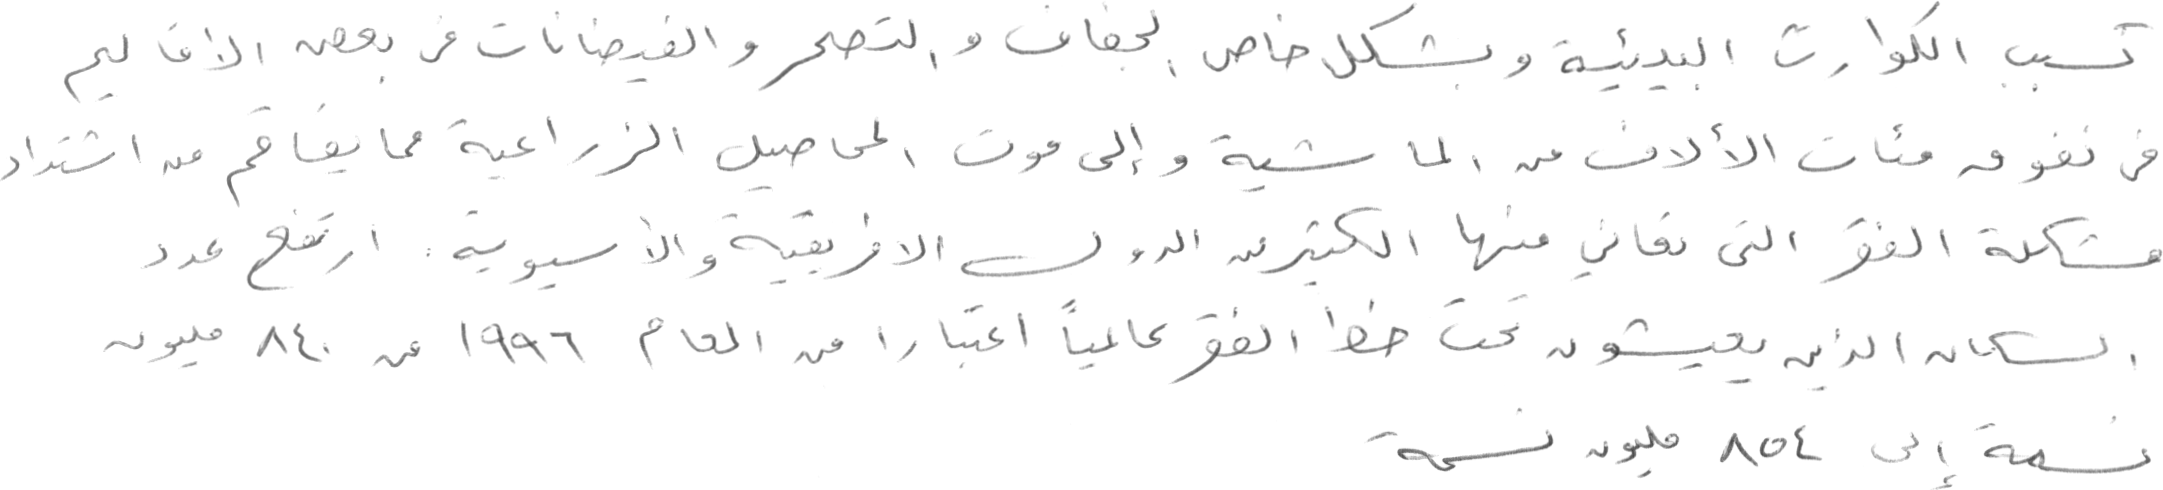 تسبب الكوارث البيئية وبشكل خاص الجفاف والتصحر والفيضانات في بعض الأقاليم
في نفوق مئات الألاف من الماشية وإلى موت المحاصيل الزراعية مما يفاقم من اشتداد
مشكلة الفقر التي تعاني منها الكثير من الدول الافريقية والأسيوية. ارتفع عدد
السكان الذين يعيشون تحت خط الفقر عالمياً اعتبارا من العام ١٩٩٦ من ٨٤٠ مليون
نسمة إلى ٨٥٤ مليون نسمة